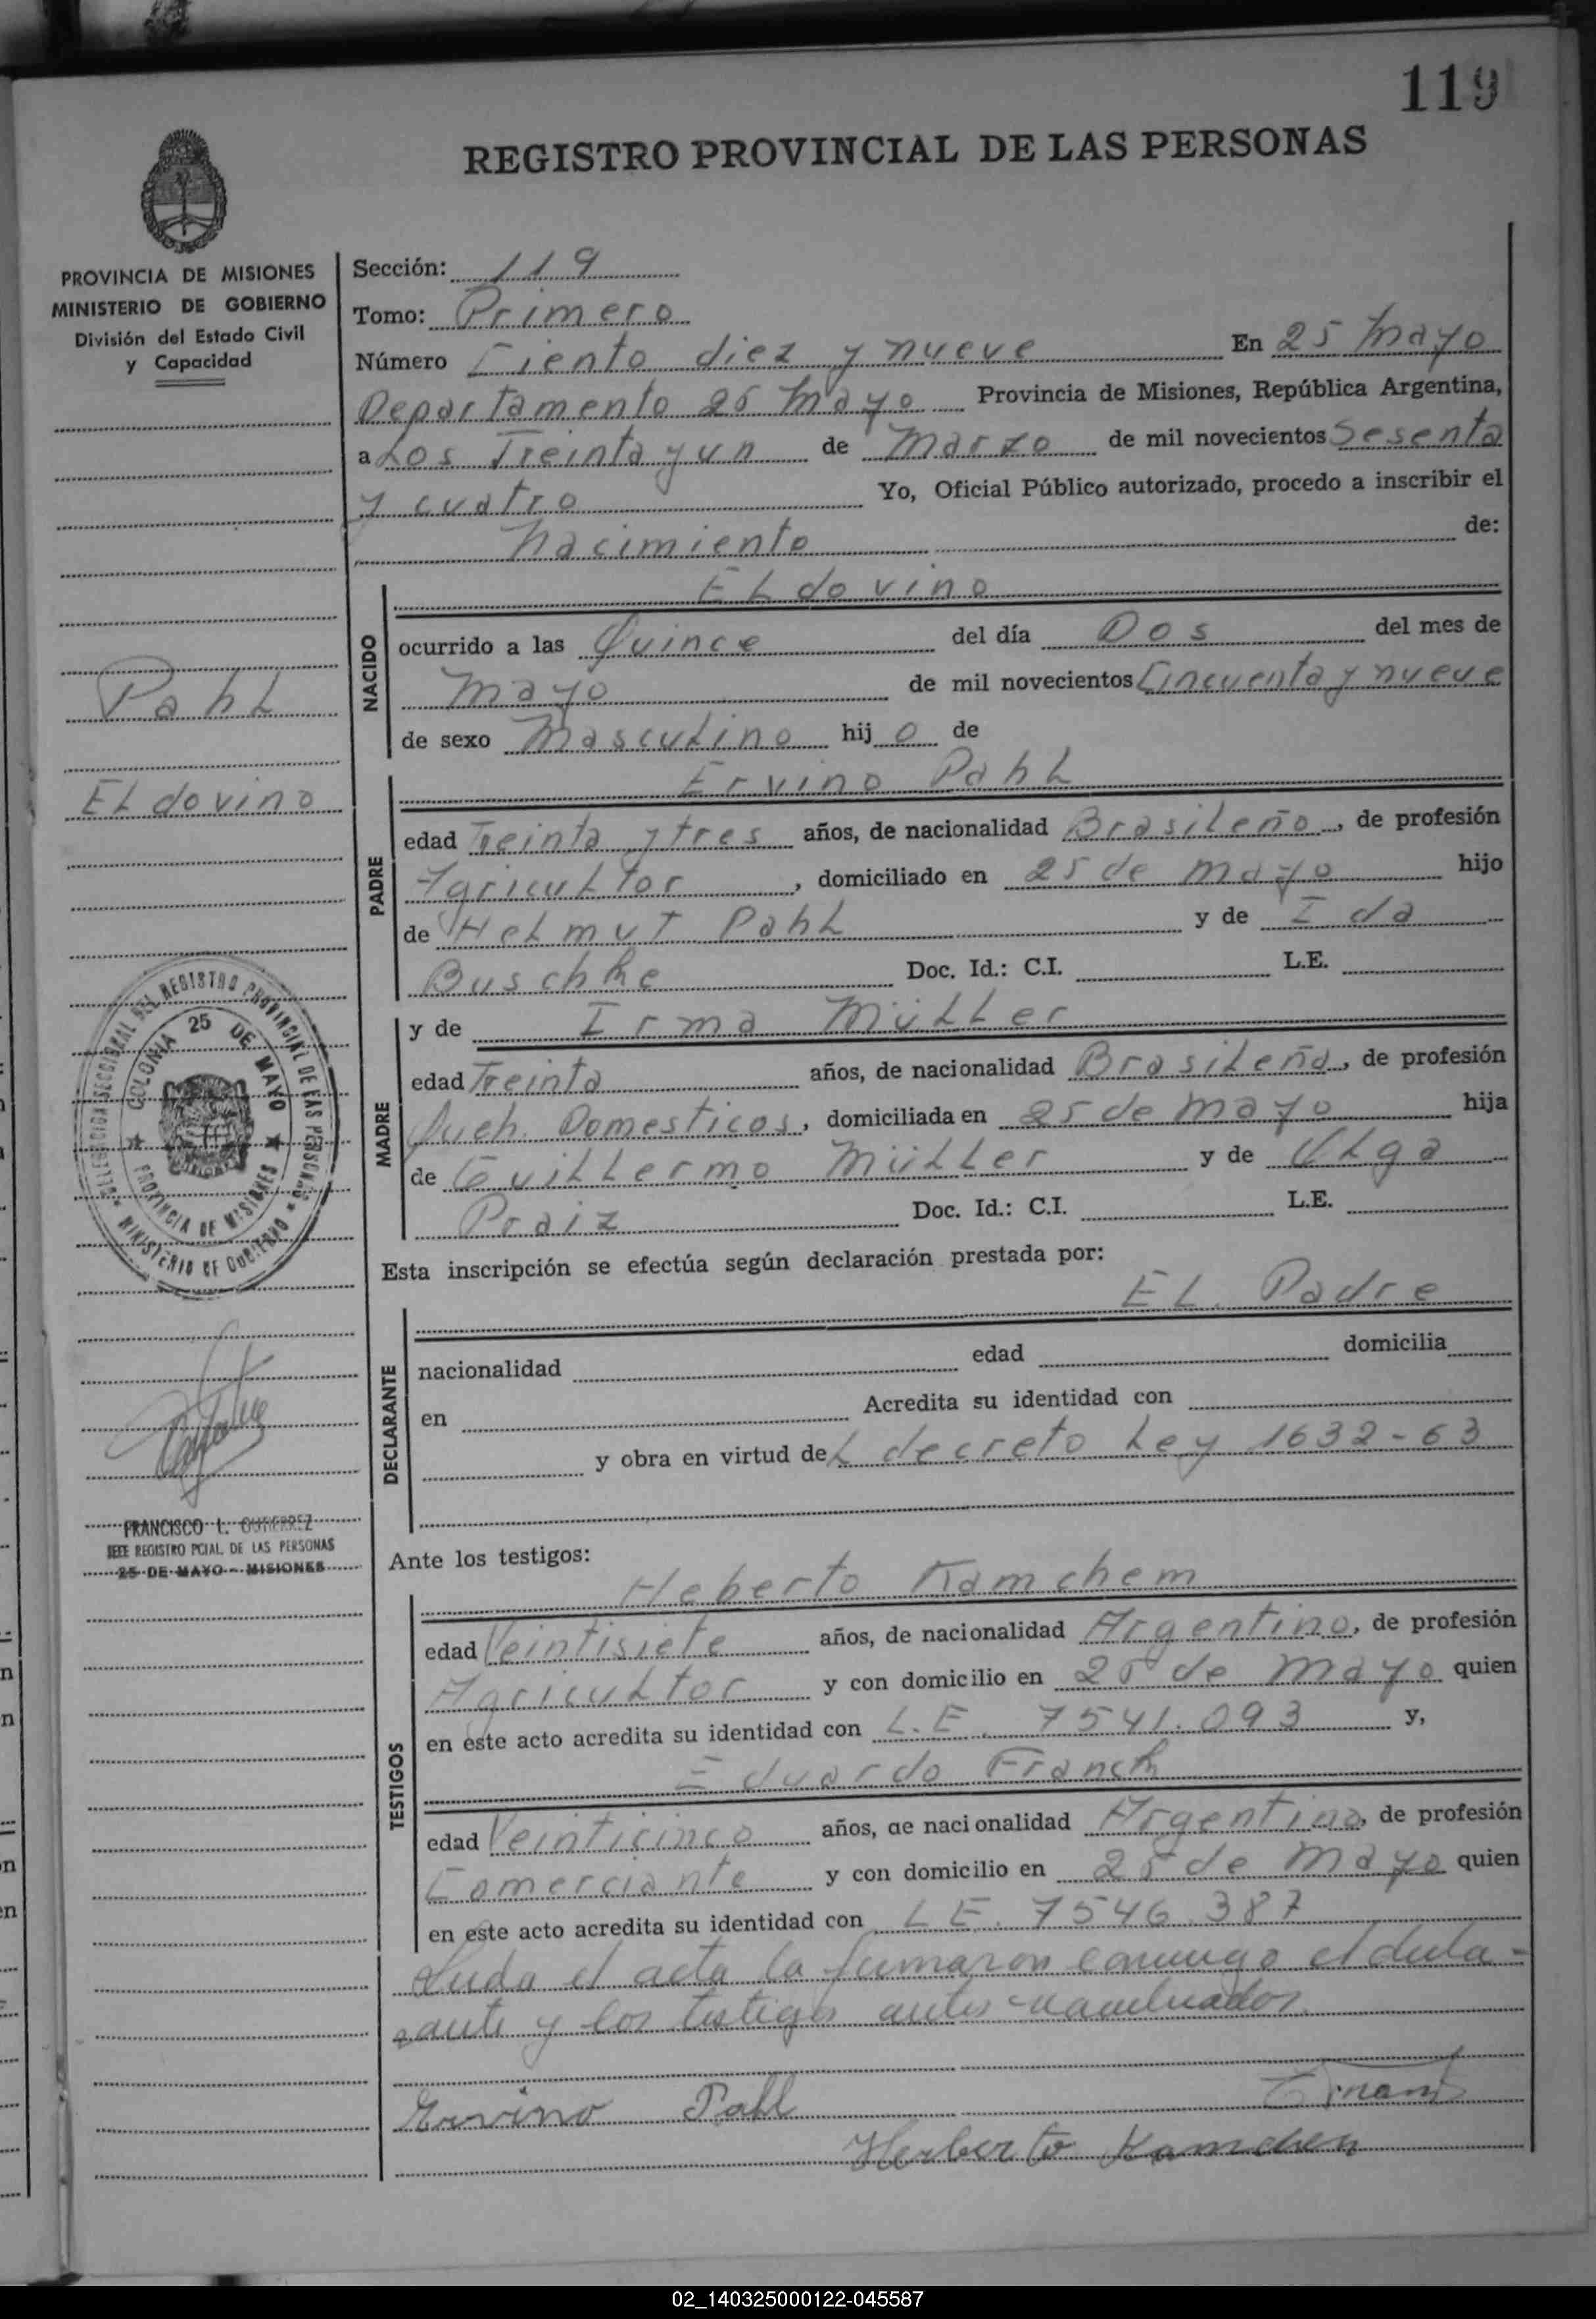 119
REGISTRO PROVINCIAL DE LAS PERSONAS
PROVINCIA DE MISIONES
MINISTERIO DE GOBIERNO
División del Estado Civil
y Capacidad
Sección: 119
Tomo: Primero
Número Ciento diez y nueve En 25 Mayo
Departamento 25 Mayo Provincia de Misiones, República Argentina,
a Los Treinta y un de Marzo de mil novecientos Sesenta
y cuatro Yo, Oficial Público autorizado, procedo a inscribir el
Nacimiento de:
Pahl
Eldovino
NACIDO
Eldovino
ocurrido a las Quince del día Dos del mes de
Mayo de mil novecientos Cincuenta y nueve
de sexo Masculino hijo de
PADRE
Ervino Pahl
edad Treinta y tres años, de nacionalidad Brasileño, de profesión
Agricultor, domiciliado en 25 de Mayo hijo
de Helmut Pahl y de Ida
Buschke Doc. Id.: C.I. L.E.
MADRE
y de Irma Müller
edad Treinta años, de nacionalidad Brasileña, de profesión
Queh. Domesticos, domiciliada en 25 de Mayo hija
de Guillermo Müller y de Olga
Praiz Doc. Id.: C.I. L.E.
DELEGACION SECCIONAL DEL REGISTRO PROVINCIAL DE LAS PERSONAS
COLONIA 25 DE MAYO
PROVINCIA DE MISIONES
MINISTERIO DE GOBIERNO
Esta inscripción se efectúa según declaración prestada por:
DECLARANTE
El Padre
nacionalidad edad domicilia
en Acredita su identidad con
y obra en virtud del decreto Ley 1632-63
FRANCISCO L. GUTIERREZ
JEFE REGISTRO PCIAL. DE LAS PERSONAS
25 DE MAYO - MISIONES
Ante los testigos:
TESTIGOS
Heberto Kamchem
edad Veintisiete años, de nacionalidad Argentino, de profesión
Agricultor y con domicilio en 25 de Mayo quien
en este acto acredita su identidad con L.E. 7541.093 y,
Eduardo Franck
edad Veinticinco años, de nacionalidad Argentino, de profesión
Comerciante y con domicilio en 25 de Mayo quien
en este acto acredita su identidad con L.E. 7546.387
Leida el acta la firmaron conmigo el decla-
rante y los testigos antes nombrados
Ervino Pahl
Herberto Kamchen
02_140325000122-045587